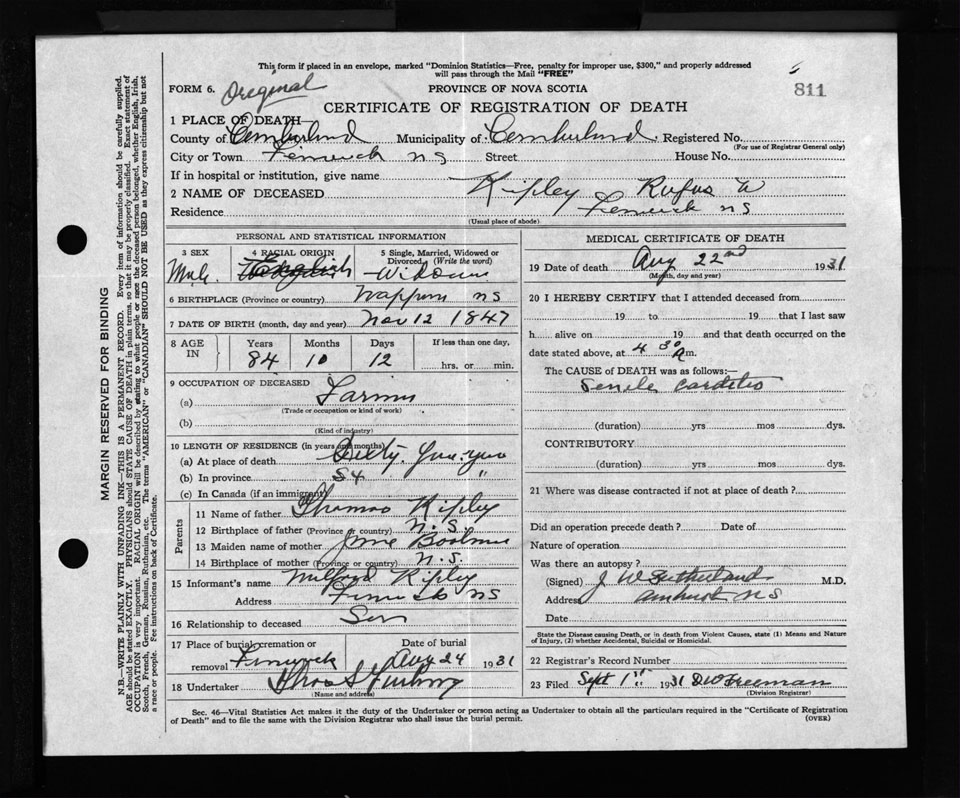 This form if placed in an envelope, marked "Dominion Statistics—Free, penalty for improper use, $300," and properly addressed
will pass through the Mail "FREE"
FORM 6. Original PROVINCE OF NOVA SCOTIA 811
CERTIFICATE OF REGISTRATION OF DEATH
1 PLACE OF DEATH—
County of Cumberland Municipality of Cumberland Registered No.
(For use of Registrar General only)
City or Town Fenwick N S Street House No.
If in hospital or institution, give name
2 NAME OF DECEASED Ripley Rufus W
Residence Fenwick N S
(Usual place of abode)
PERSONAL AND STATISTICAL INFORMATION
3 SEX 4 RACIAL ORIGIN 5 Single, Married, Widowed or
Divorced (Write the word)
Male English Widower
6 BIRTHPLACE (Province or country) Nappan N S
7 DATE OF BIRTH (month, day and year) Nov 12 1847
8 AGE IN Years Months Days If less than one day,
84 10 12 hrs. or min.
9 OCCUPATION OF DECEASED
(a) Farmer
(Trade or occupation or kind of work)
(b)
(Kind of industry)
10 LENGTH OF RESIDENCE (in years and months)
(a) At place of death Sixty
(b) In province 84 "
(c) In Canada (if an immigrant)
Parents
11 Name of father Thomas Ripley
12 Birthplace of father (Province or country) N. S.
13 Maiden name of mother Jane
14 Birthplace of mother (Province or country) N. S.
15 Informant's name Milford Ripley
Address Fenwick N S
16 Relationship to deceased Son
17 Place of burial, cremation or Date of burial
removal Fenwick Aug 24 1931
18 Undertaker Thos S
(Name and address)
MEDICAL CERTIFICATE OF DEATH
19 Date of death Aug 22nd 1931
(Month, day and year)
20 I HEREBY CERTIFY that I attended deceased from
19 to 19 that I last saw
h alive on 19 and that death occurred on
date stated above, at 4 30 a m.
The CAUSE of DEATH was as follows:—
Senile carditis
(duration) yrs mos dys.
CONTRIBUTORY
(duration) yrs mos dys.
21 Where was disease contracted if not at place of death?
Did an operation precede death? Date of
Nature of operation
Was there an autopsy?
(Signed) J W Sutherland M.D.
Address Amherst N S
Date
State the Disease causing Death, or in death from Violent Causes, state (1) Means and Nature
of Injury, (2) whether Accidental, Suicidal or Homicidal.
22 Registrar's Record Number
23 Filed Sept 1st 1931 D W Freeman
(Division Registrar)
Sec. 46—Vital Statistics Act makes it the duty of the Undertaker or person acting as Undertaker to obtain all the particulars required in the "Certificate of Registration
of Death" and to file the same with the Division Registrar who shall issue the burial permit. (OVER)
MARGIN RESERVED FOR BINDING
N.B.—WRITE PLAINLY WITH UNFADING INK—THIS IS A PERMANENT RECORD. Every item of information should be carefully supplied.
AGE should be stated EXACTLY. PHYSICIANS should STATE CAUSE OF DEATH in plain terms, so that it may be properly classified. Exact statement of
OCCUPATION is very important. RACIAL ORIGIN will be described by stating to what people or race the deceased person belonged, whether English, Irish,
Scotch, French, German, Russian, Ruthenian, etc. The terms "AMERICAN" or "CANADIAN" SHOULD NOT BE USED as they express citizenship but not
a race or people. See instructions on back of Certificate.